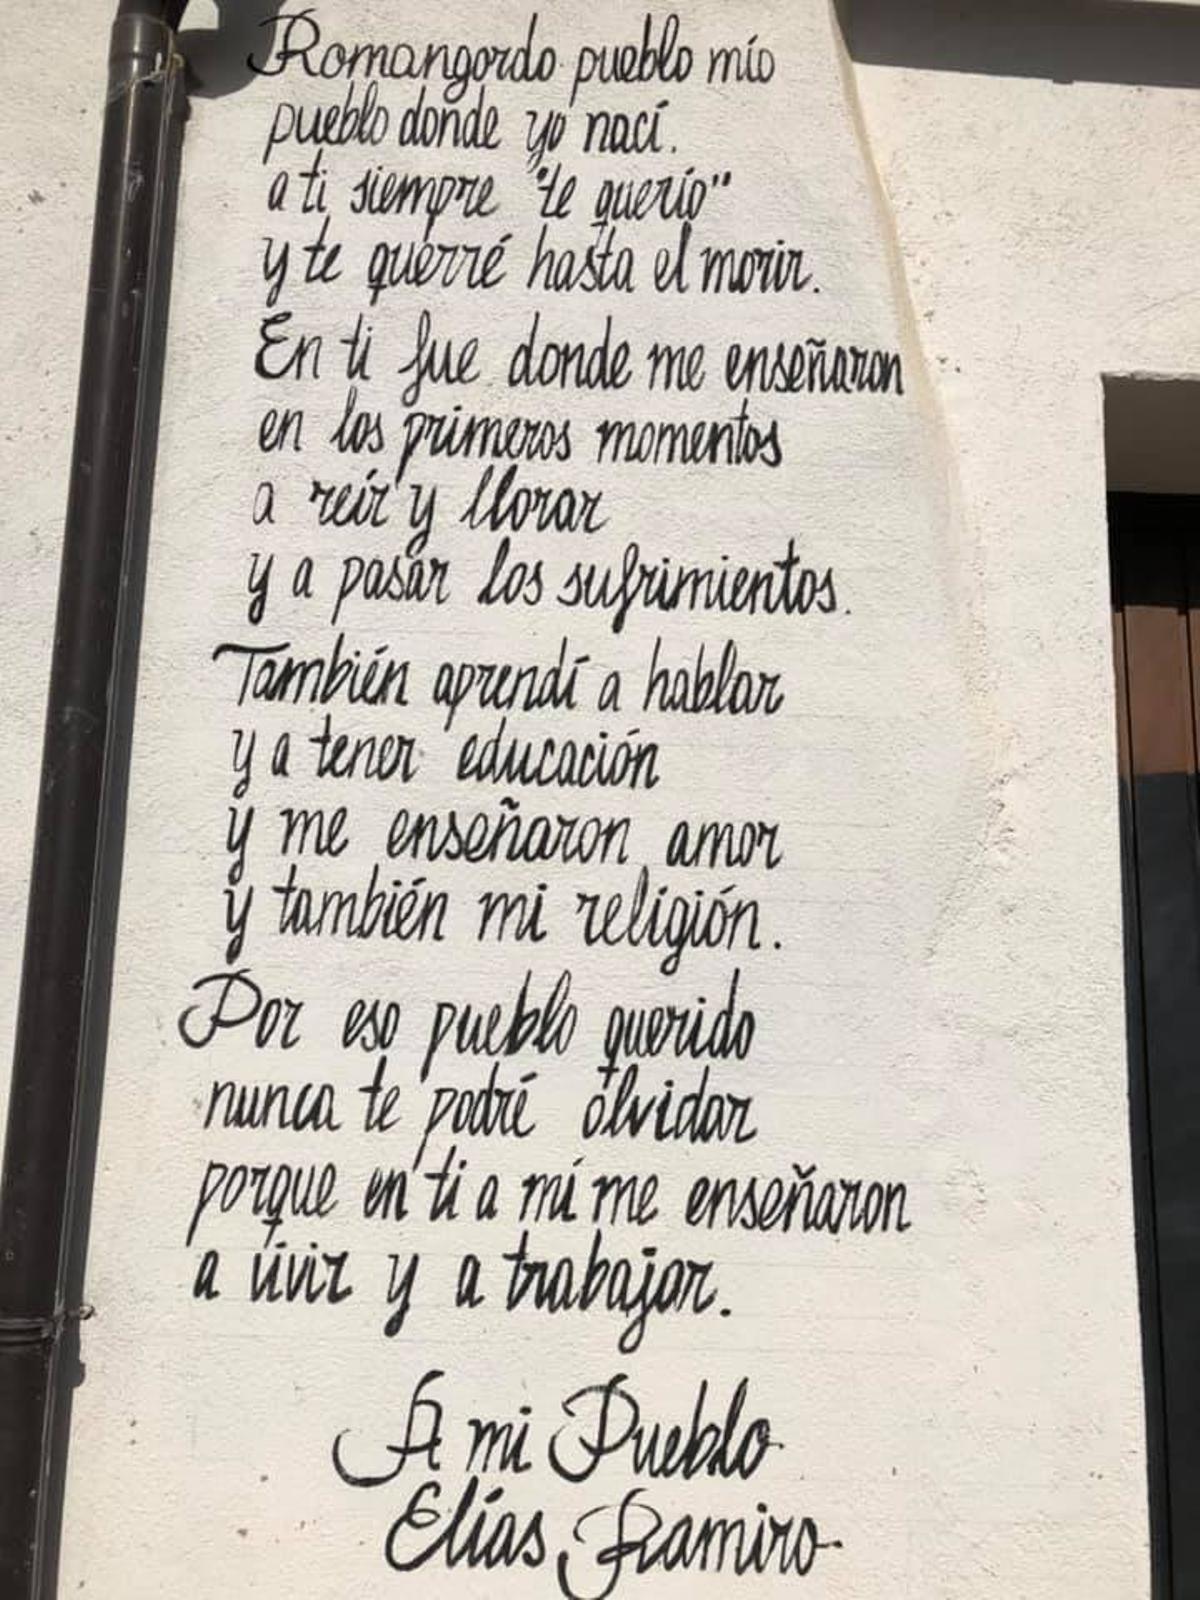 Romangordo pueblo mío
pueblo donde yo nací.
a ti siempre "te querío"
y te querré hasta el morir.
En ti fue donde me enseñaron
en los primeros momentos
a reír y llorar
y a pasar los sufrimientos.
También aprendí a hablar
y a tener educación
y me enseñaron amor
y también mi religión.
Por eso pueblo querido
nunca te podré olvidar
porque en ti a mí me enseñaron
a vivir y a trabajar.
A mi Pueblo
Elías Ramiro